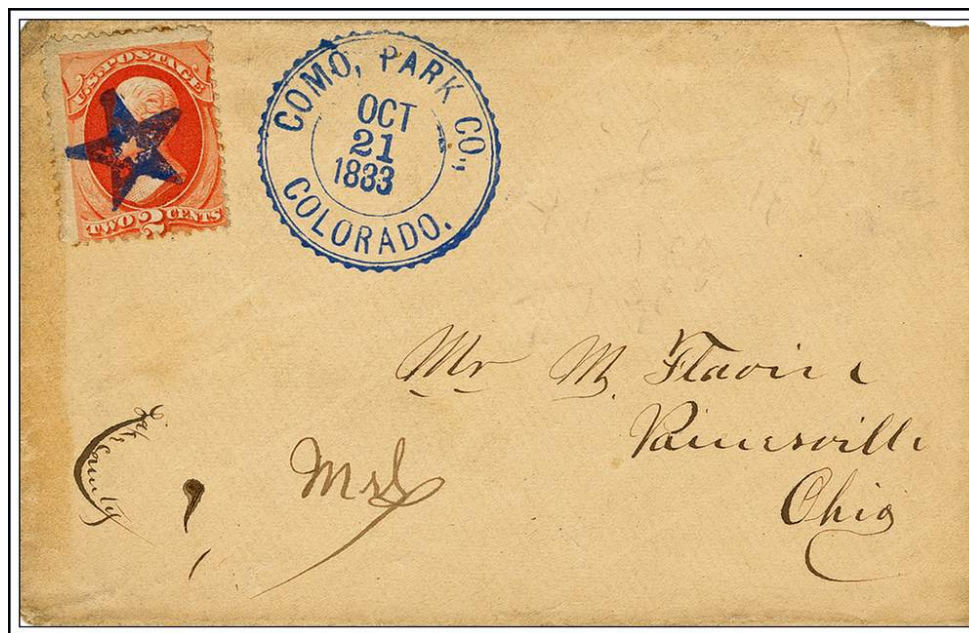 U.S. POSTAGE
TWO 2 CENTS
COMO, PARK CO.,
OCT
21
1883
COLORADO.
Mr M. Flavin
Painesville
Ohio
Lake County
Mrs